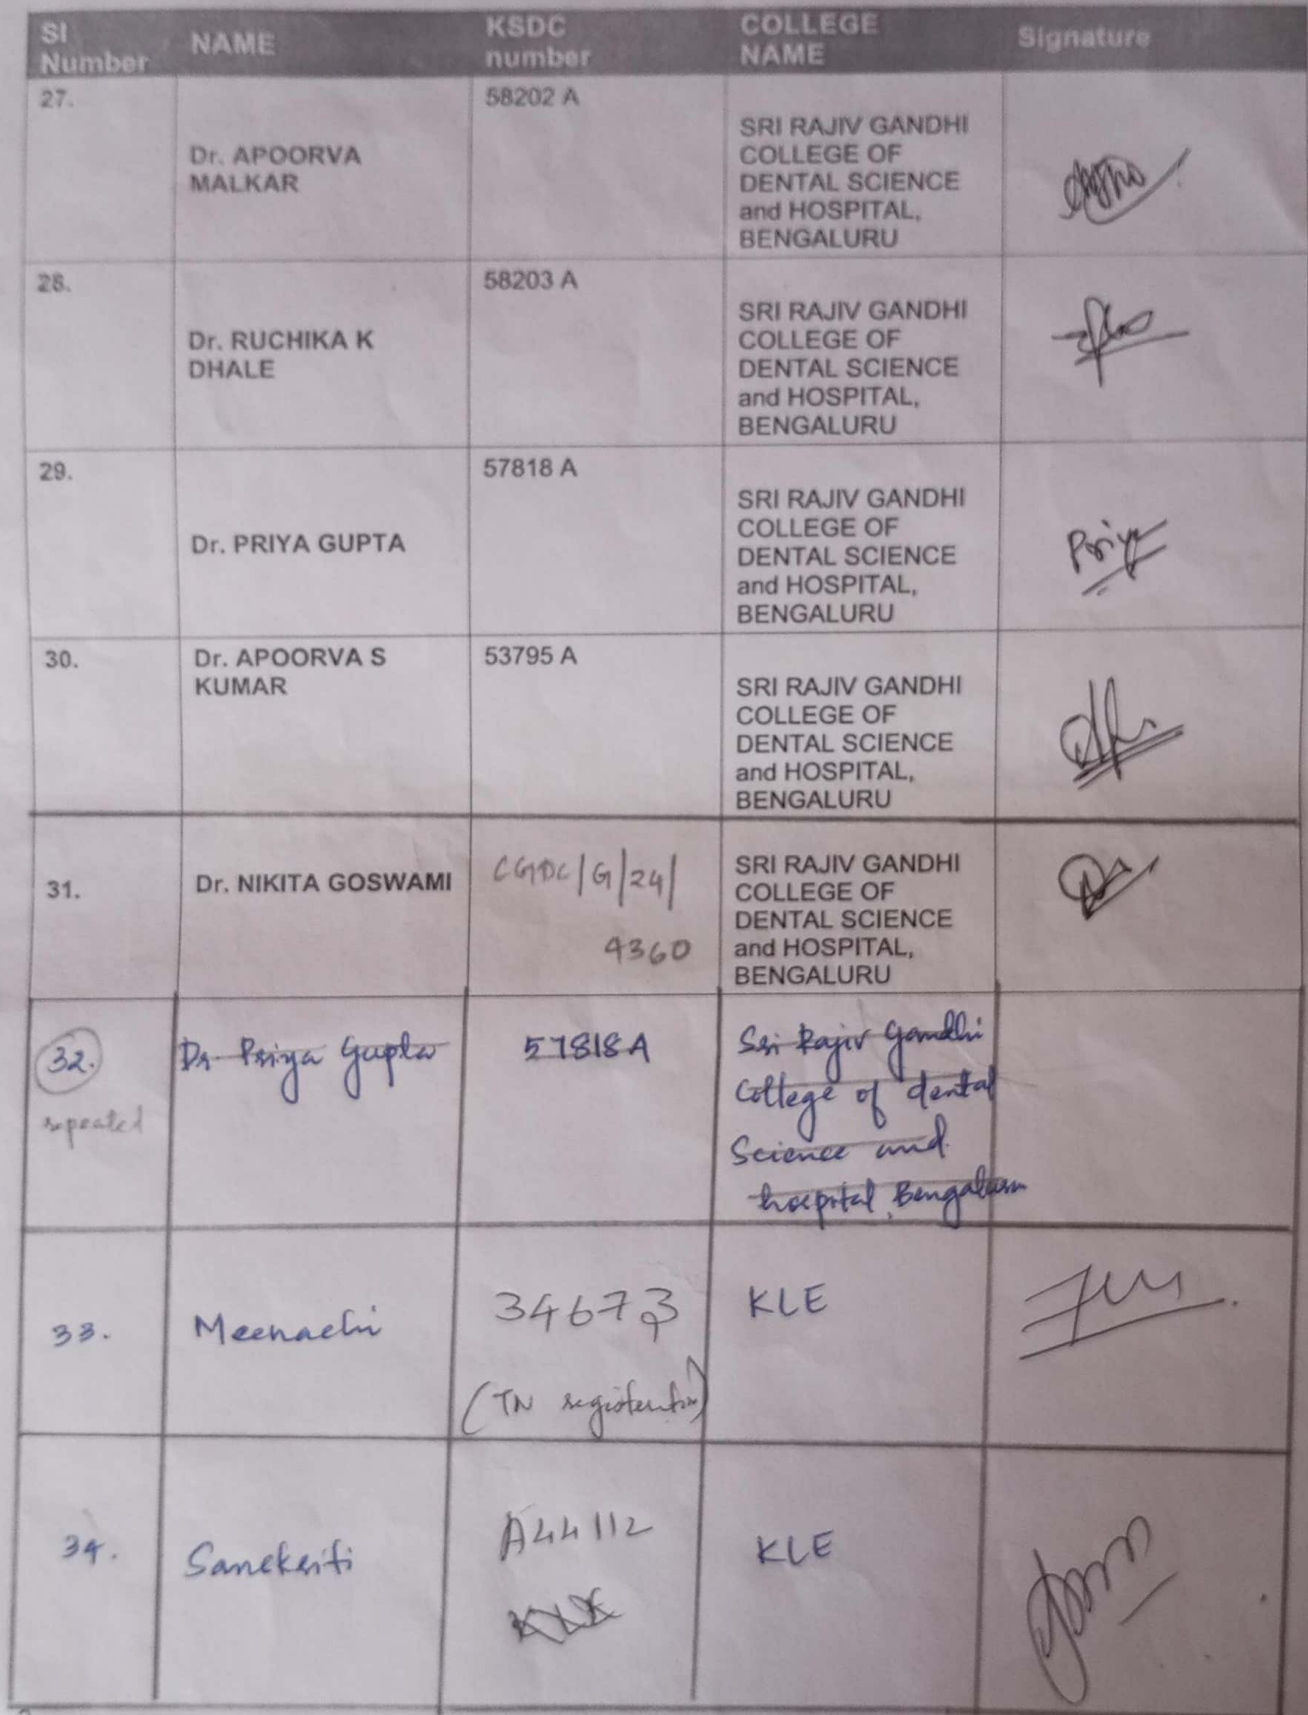 SI Number NAME KSDC number COLLEGE NAME Signature
27.
Dr. APOORVA
MALKAR
58202 A
SRI RAJIV GANDHI
COLLEGE OF
DENTAL SCIENCE
and HOSPITAL,
BENGALURU
28.
Dr. RUCHIKA K
DHALE
58203 A
SRI RAJIV GANDHI
COLLEGE OF
DENTAL SCIENCE
and HOSPITAL,
BENGALURU
29.
Dr. PRIYA GUPTA
57818 A
SRI RAJIV GANDHI
COLLEGE OF
DENTAL SCIENCE
and HOSPITAL,
BENGALURU
Priya
30.
Dr. APOORVA S
KUMAR
53795 A
SRI RAJIV GANDHI
COLLEGE OF
DENTAL SCIENCE
and HOSPITAL,
BENGALURU
31.
Dr. NIKITA GOSWAMI
CGDC/G/24/
4360
SRI RAJIV GANDHI
COLLEGE OF
DENTAL SCIENCE
and HOSPITAL,
BENGALURU
32.
repeated
Dr Priya Gupta
57818A
Sri Rajiv Gandhi
College of dental
Science and
hospital, Bengaluru
33.
Meenachi
34673
(TN registration)
KLE
34.
Sanekriti
A44112
KLE